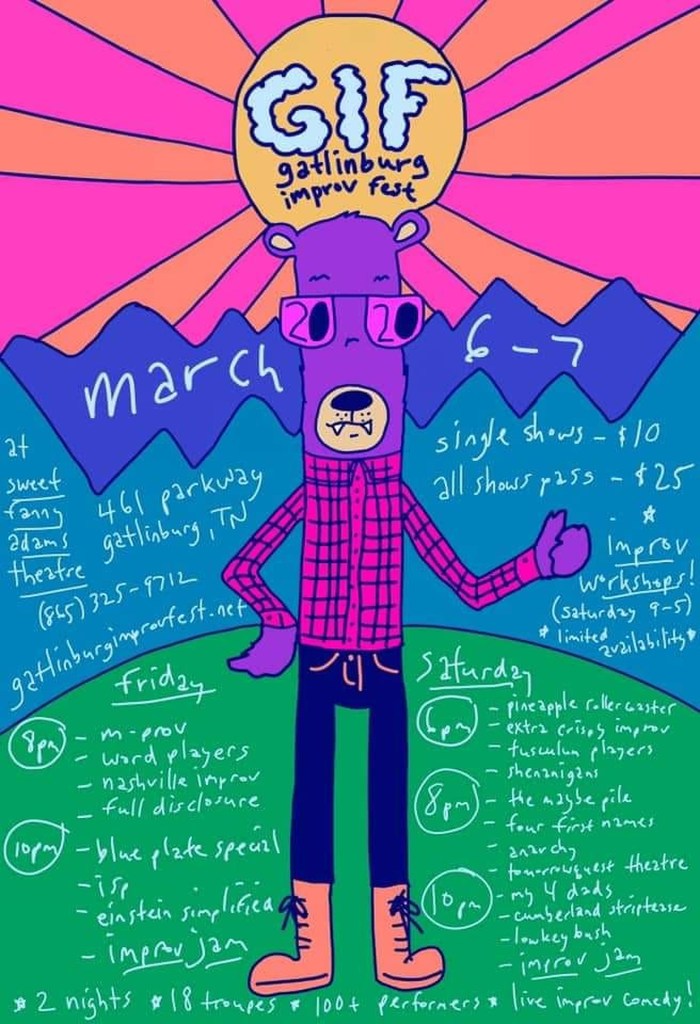 GIF
gatlinburg
improv fest
20 20
march 6-7
at
sweet
fanny
adams
theatre
461 parkway
gatlinburg, TN
(865) 325-9712
gatlinburgimprovfest.net
single shows - $10
all shows pass - $25
improv
workshops!
(saturday 9-5)
* limited
availability*
friday
8pm
- m-prov
- word players
- nashville improv
- full disclosure
10pm
- blue plate special
- isp
- einstein simplified
- improv jam
saturday
6pm
- pineapple rollercoaster
- extra crispy improv
- tusculum players
- shenanigans
8pm
- the maybe pile
- four first names
- anarchy
- tomorrowquest theatre
10pm
- my 4 dads
- cumberland striptease
- lowkey bash
- improv jam
* 2 nights * 18 troupes * 100+ performers * live improv comedy!